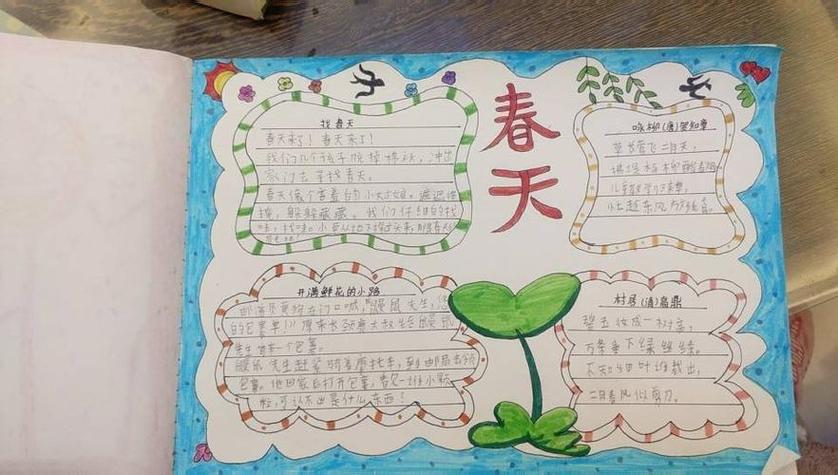 找春天
春天来了！春天来了！
我们几个孩子脱掉棉袄，冲出
家门去寻找春天。
春天像个害羞的小姑娘。遮遮掩
掩，躲躲藏藏。我们仔细的找
小草从地下探出头来，那是春
春天
咏柳(唐)贺知章
草长莺飞二月天，
拂堤杨柳醉春烟
儿童
忙趁东风放纸鸢。
开满鲜花的小路
邮递员黄狗在门口喊，"鼹鼠先生，
的包裹单！"原来长颈鹿大叔给鼹鼠
先生寄来一个包裹。
鼹鼠先生赶紧骑着摩托车，到邮局去领
包裹，他回家后打开包裹，看见一堆小颗
粒，可认不出是什么东西？
村居(清)高鼎
碧玉妆成一树高，
万条垂下绿丝绦。
不知细叶谁裁出，
二月春风似剪刀。